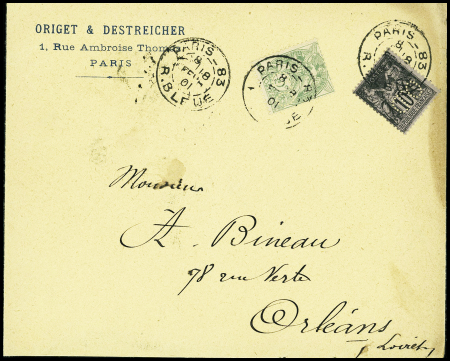 ORIGET & DESTREICHER
1, Rue Ambroise Thomas
PARIS
PARIS-83
8
18
01
R. BLEUE
PARIS
83
8
01
PARIS-83
8
18
R.
10
Monsieur
A. Bineau
78 rue Verte
Orléans
Loiret